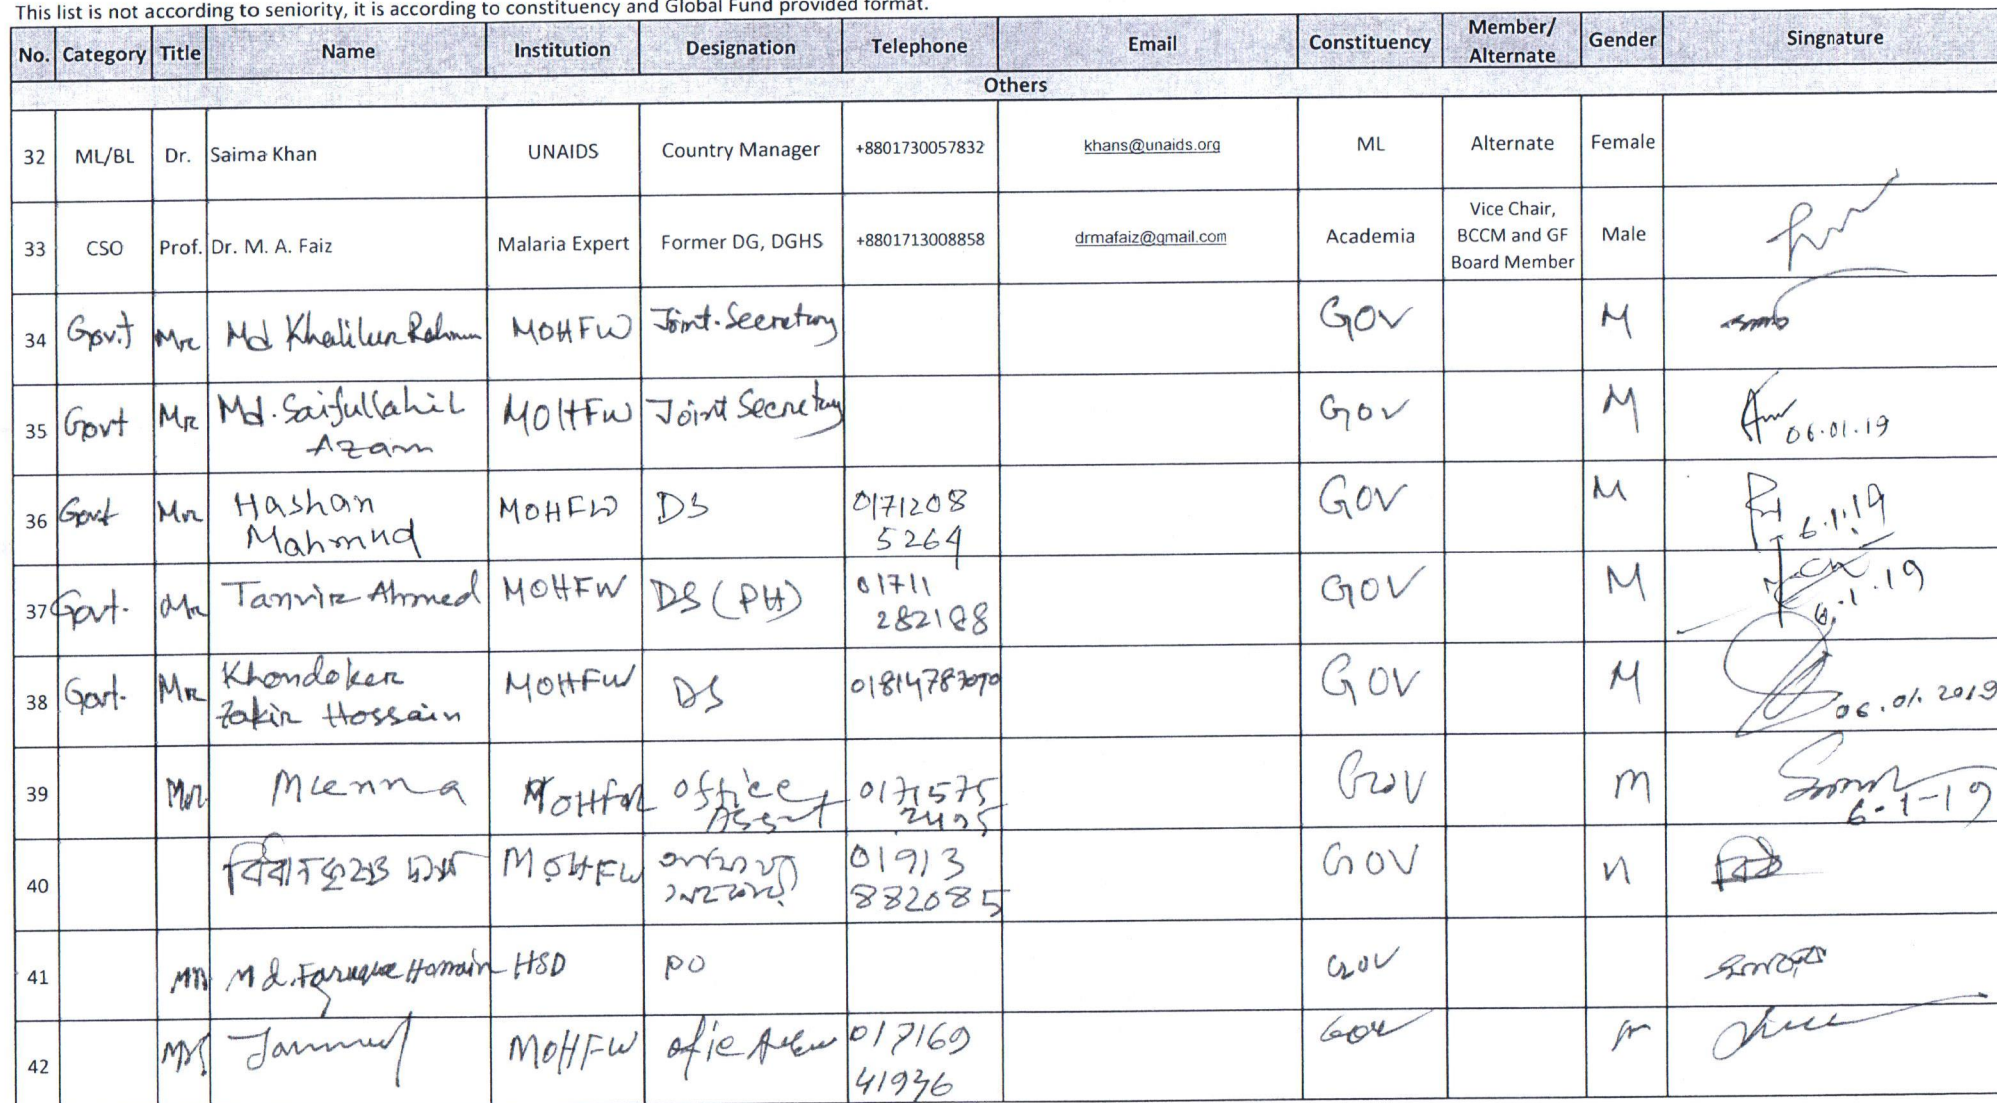 This list is not according to seniority, it is according to constituency and Global Fund provided format.
No. Category Title Name Institution Designation Telephone Email Constituency Member/ Alternate Gender Singnature
Others
32 ML/BL Dr. Saima Khan UNAIDS Country Manager +8801730057832 khans@unaids.org ML Alternate Female
33 CSO Prof. Dr. M. A. Faiz Malaria Expert Former DG, DGHS +8801713008858 drmafaiz@gmail.com Academia Vice Chair, BCCM and GF Board Member Male
34 Govt Mr Md Khalilur Rahman MOHFW Joint-Secretary GOV M
35 Govt Mr Md. Saifullahil Azam MOHFW Joint Secretary GOV M 06.01.19
36 Govt Mr Hashan Mahmud MOHFW DS 0171208 5264 GOV M 6.1.19
37 Govt. Mr Tanvir Ahmed MOHFW DS (PH) 01711 282188 GOV M 6.1.19
38 Govt. Mr Khondoker Zakir Hossain MOHFW DS GOV M 06.01.2019
39 Mr. MOHFW office Asst GOV M 6-1-19
40 MOHFW 01913 882085 GOV
41 Md. Faruque HSD PO GOV
42 MOHFW 017169 41936 GOV